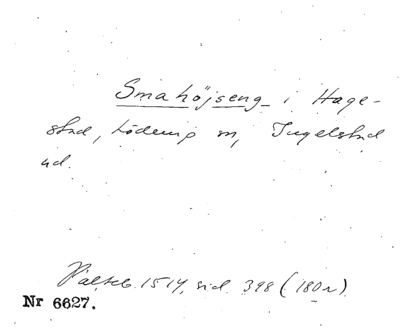 Smahöjseng i Hage-
stad, Löderup sn, Ingelstad
hd.
Pältsb. 1514, sid. 398 (180r)
Nr 6627.